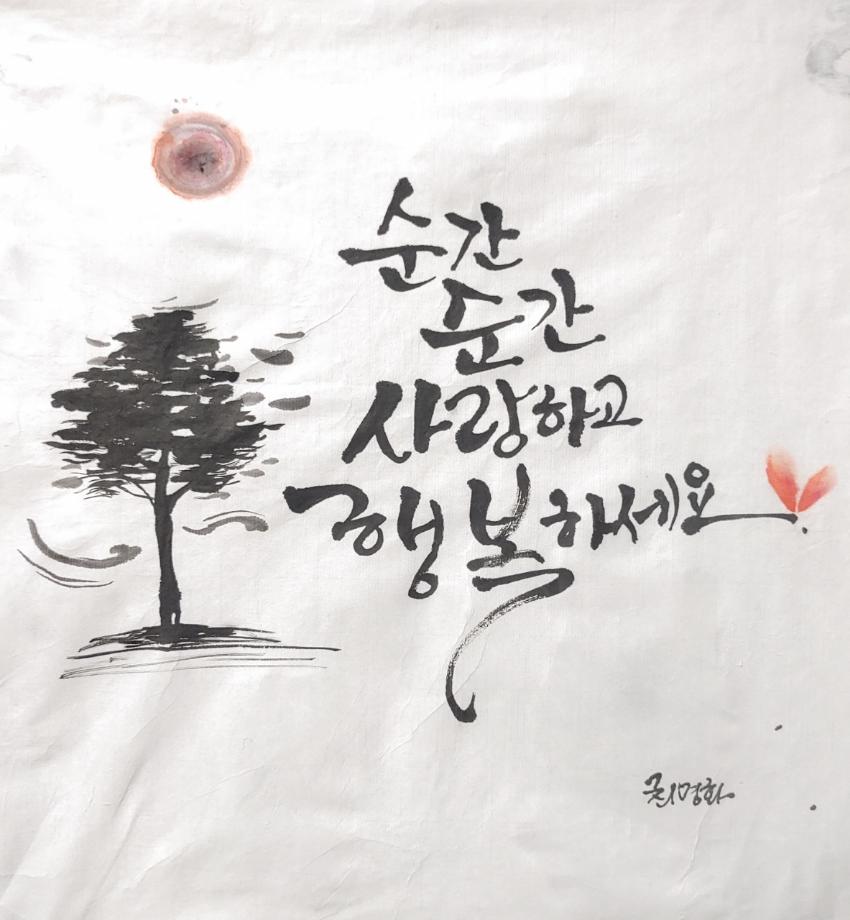 순간
순간
사랑하고
행복하세요